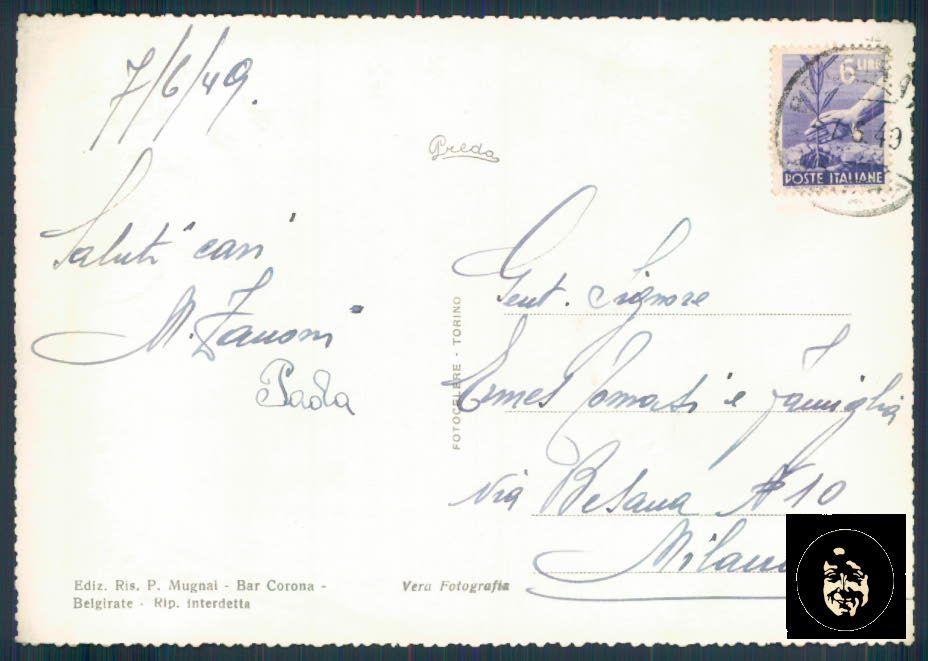 7/6/49.
6 LIRE
7.6.49
POSTE ITALIANE
Preda
Saluti cari
M. Zanoni
Paola
Gent. Signore
Ermes Tomasi e Famiglia
via Besana N 10
Milano
FOTOCELERE - TORINO
Ediz. Ris. P. Mugnai - Bar Corona -
Belgirate - Rip. interdetta
Vera Fotografia